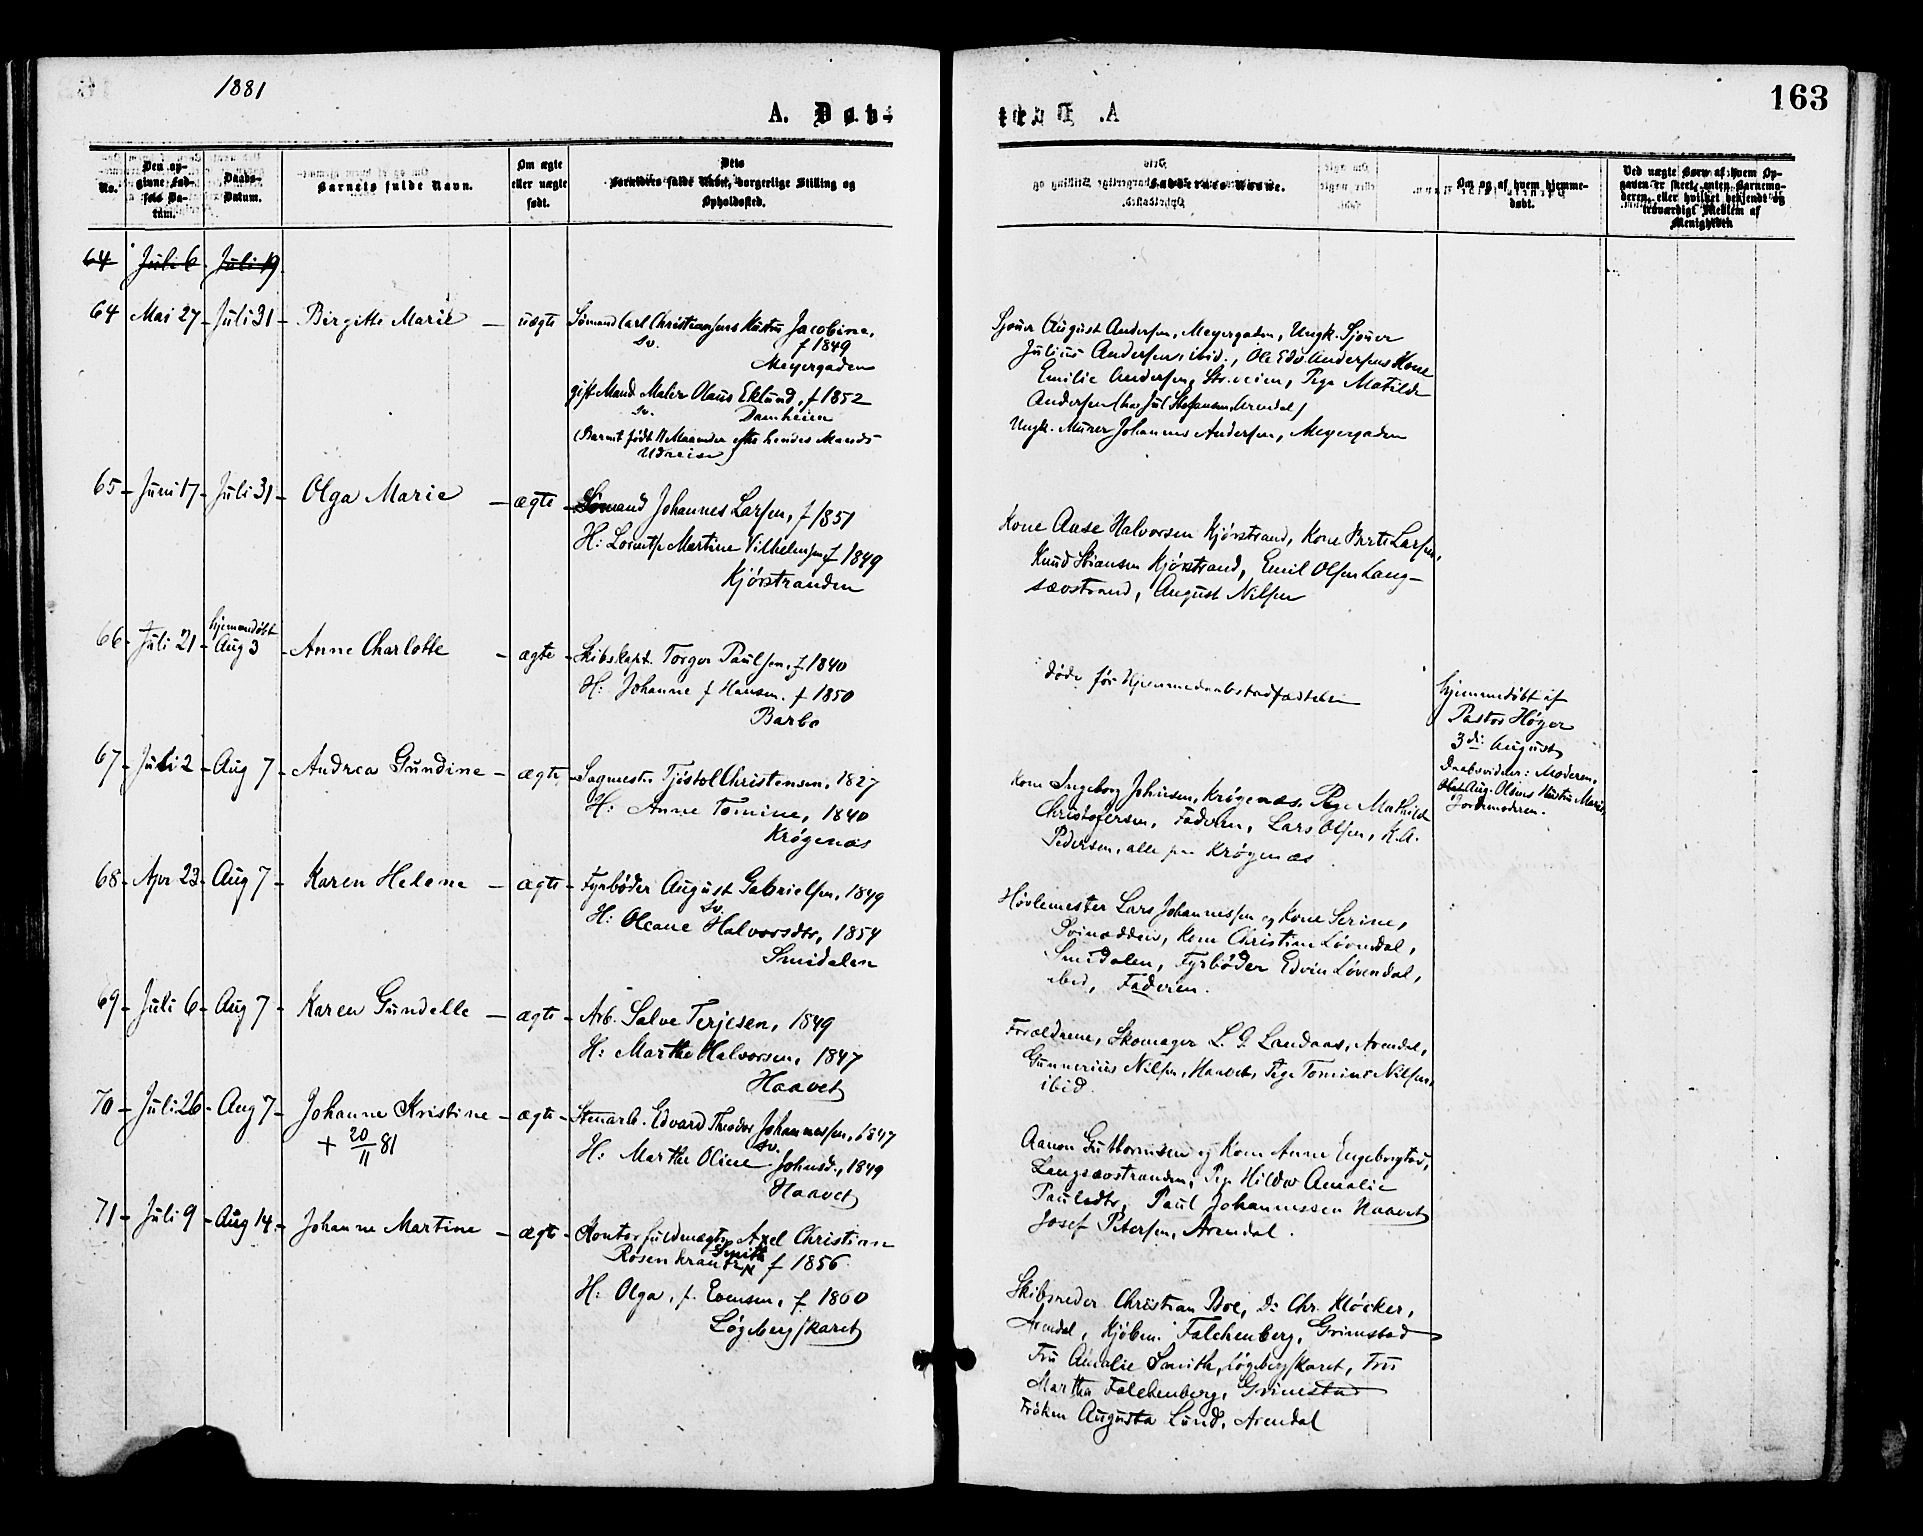 1881
A. Døbt
163
No.
Den op-
givne Fød-
sels Da-
tum.
Daabs-
Datum.
Barnets fulde Navn.
Om ægte
eller uægte
født.
Forældres fulde Navn, borgerlige Stilling og
Opholdssted.
Faddernes Navne.
Om og af hvem hjemme-
døbt.
Ved uægte Børn af hvem Op-
gaven er skeet, enten Barnemo-
deren, eller hvilket bekjendt og
troværdigt Medlem af
Menigheden
64 Juli 6 Juli 19
64 Mai 27 Juli 31 Birgitte Marie uægte Sømand Carl Christiansens Hustru Jacobine,
sv. f 1849
Meyergaden
gift Mand Maler Olaus Eklund, f 1852
sv. Damheien
(Barnet født 11 Maaneder efter hendes Mands
Udreise)
Sjouer August Andersen, Meyergaden, Ungk. Sjouer
Julius Andersen, ibid., Ole Edv. Andersens Kone
Emilie Andersen, Pige Matilde
Andersen (hos Jul Stefansen, Arendal)
Ungk. Murer Johannes Andersen, Meyergaden
65 Juni 17 Juli 31 Olga Marie ægte Sømand Johannes Larsen, f 1851
H: Martine Vilhelmsen f 1849
Kjørstranden
Kone Aase Halvorsen Kjørstrand, Kone Berte Larsen,
Knud Kjørstrand, Emil Olsen Lang-
sævstrand, August Nilsen
66 Juli 21 hjemmedøbt
Aug 3 Anne Charlotte ægte Skibskapt. Torger Paulsen, f 1840
H: Johanne f Hansen. f 1850
Barbo
døde før
hjemmedøbt af
Pastor Høyer
3die August
Daabsvidner: Moderen,
Aug. Olsens Hustru Marie,
Jordemoderen.
67 Juli 2 Aug 7 Andrea Gundine ægte Sagmester Tjøstol Christensen, 1827
H: Anne Tomine, 1840
Krøgenæs
Kone Ingeborg Johnsen, Krøgenæs, Pige Mathilde
Christofersen, Faderen, Lars Olsen, K.A.
Pedersen, alle paa Krøgenæs
68 Apr 23 Aug 7 Karen Helene ægte Fyrbøder August Gabrielsen, 1849
sv.
H: Oleane Halvorsdtr, 1854
Smidalen
Høvlemester Lars Johannessen og Kone Serine,
Svinodden, Kone Christine Løvendal,
Smidalen, Fyrbøder Edvin Løvendal,
ibid, Faderen.
69 Juli 6 Aug 7 Karen Gundelle ægte Arb. Salve Terjesen, 1849
H: Marthe Halvorsen, 1847
Haavet
Forældrene, Skomager L. G. Landaas, Arendal,
Gunnerius Nilsen, Haavet, Pige Tomine Nilsen,
ibid.
70 Juli 26 Aug 7 Johanne Kristine ægte Stenarb. Edvard Theodor Johannessen, 1847
+ 20/11 81
sv.
H: Marthe Oline Johnsd., 1849
Haavet
Aanon Guttormsen og Kone Anne Engebregtsd,
Langsævstranden, Pige Hilda Amalie
Paulsdtr, Paul Johannessen Haavet
Josef Petersen, Arendal.
71 Juli 9 Aug 14 Johanne Martine ægte Kontorfuldmægtig Axel Christian
Rosenkrantz Smith f 1856
H: Olga, f. Evensen, f 1860
Løgebergskaret
Skibsreder Christian Boe, Do Chr. Kløcker,
Arendal, Kjøbm. Falchenberg, Grimstad
Fru Amalie Smith, Løgebergskaret, Fru
Martha Falchenberg, Grimstad
Frøken Augusta Lund, Arendal